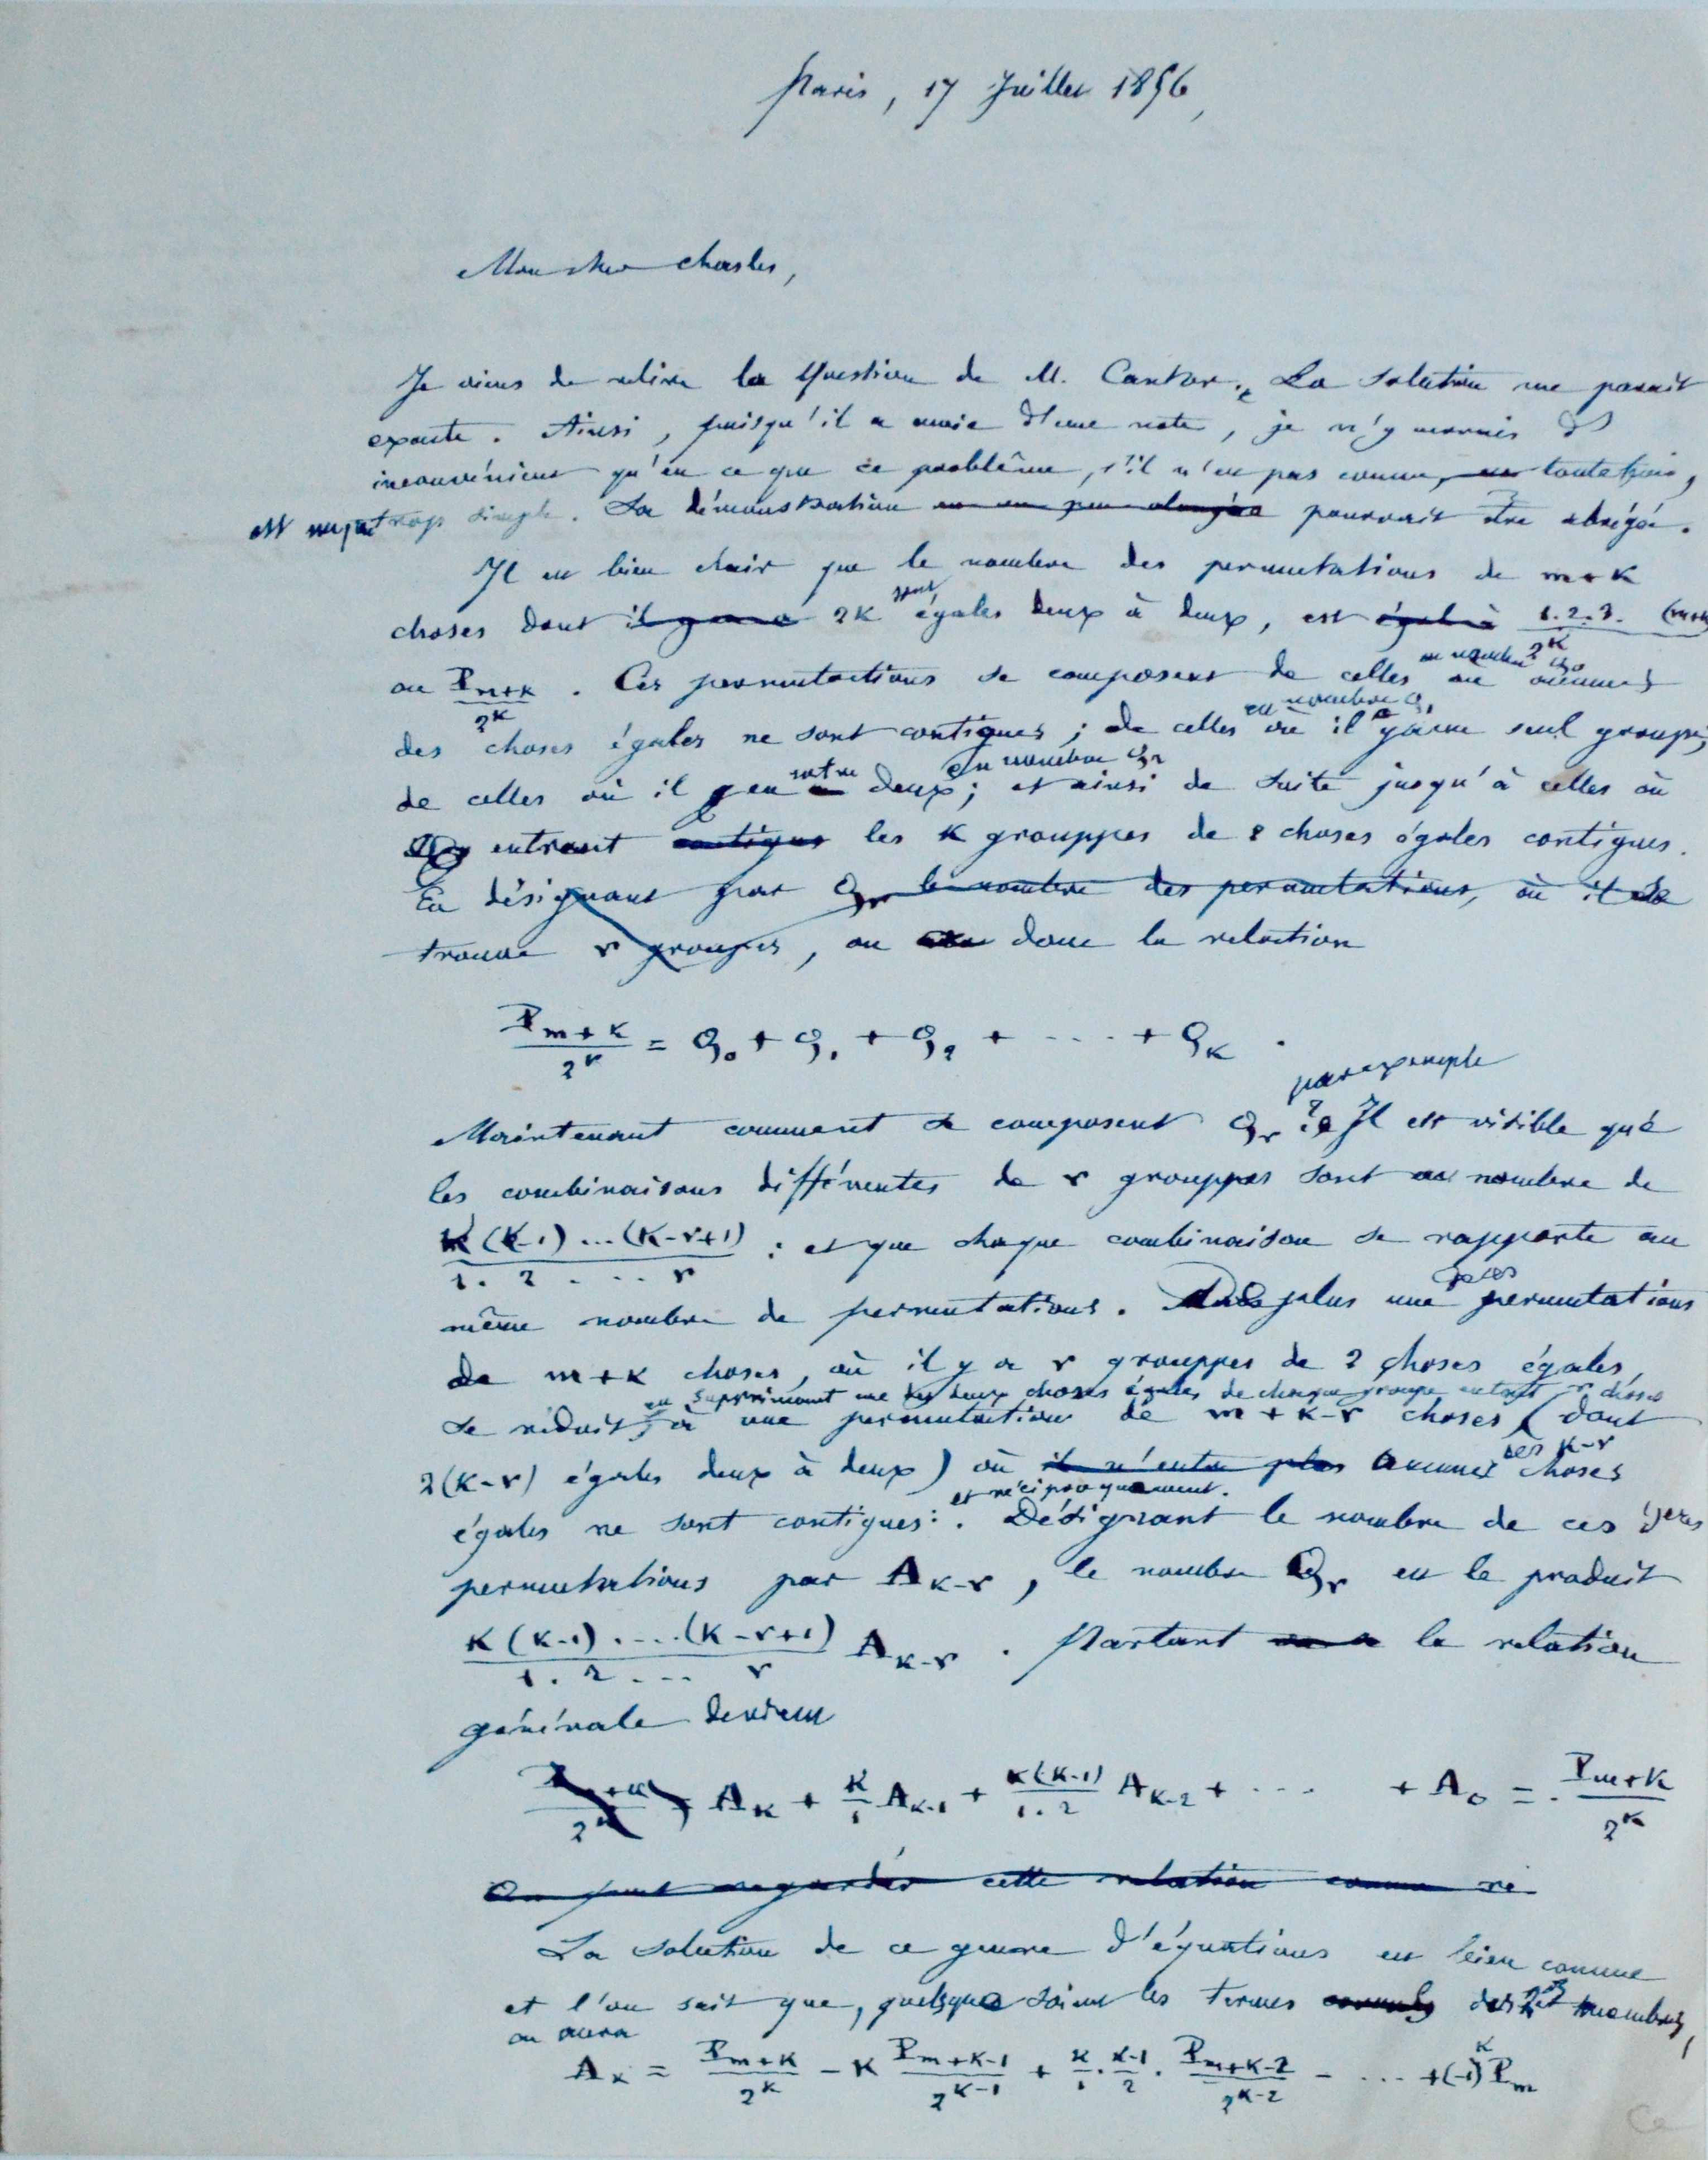 Paris, 17 Juillet 1856,
Mon cher Chasles,
Je viens de relire la Question de M. Cantor. La solution me parait
exacte. Ainsi, puisqu'il a envie d'une note, je n'y verrais d'
inconvénient qu'en ce que ce problême, s'il n'est pas connu, toutefois,
est trop simple. La démonstration en est un peu alongée pourrait être abrégée.
Il est bien clair que le nombre des permutations de m+K
choses dont il y en a 2K sont égales deux à deux, est égal à 1.2.3. (m+K / 2^K
ou P_{m+K} / 2^K. Ces permutations se composent de celles en nombre Q_0 où aucunes
des choses égales ne sont contigues ; de celles en nombre Q_1 où il y a un seul groupe,
de celles où il y en entre deux, en nombre Q_2 ; et ainsi de suite jusqu'à celles où
entrent contigus les K grouppes de 2 choses égales contigues.
En désignant par Q_r le nombre des permutations, où il se
trouve r groupes, on a donc la relation
P_{m+K} / 2^K = Q_0 + Q_1 + Q_2 + .... + Q_K .
Maintenant comment se composent Q_r par exemple ? Il est visible que
les combinaisons différentes de r grouppes sont au nombre de
K(K-1)...(K-r+1) / 1.2...r ; et que chaque combinaison se rapporte au
même nombre de permutations. De plus une des permutations
de m+K choses, où il y a r grouppes de 2 choses égales,
en supprimant une des deux choses égales de chaque groupe
se réduit à une permutation de m+K-r choses (dont
2(K-r) égales deux à deux) où il n'entre plus aucunes des K-r choses
égales ne sont contigues : et réciproquement. Désignant le nombre de ces
permutations par A_{K-r}, le nombre Q_r est le produit
K(K-1)....(K-r+1) / 1.2...r A_{K-r} . Partant on a la relation
générale devient
P_{m+K} / 2^K = A_K + K/1 A_{K-1} + K(K-1)/1.2 A_{K-2} + .... + A_0 = P_{m+K} / 2^K
On peut regarder cette relation comme ré
La solution de ce genre d'équations est bien connue
et l'on sait que, quelsque soient les termes des 2ds membres,
on aura
A_K = P_{m+K} / 2^K - K P_{m+K-1} / 2^{K-1} + K/1 . K-1/2 . P_{m+K-2} / 2^{K-2} - .... + (-1)^K P_m